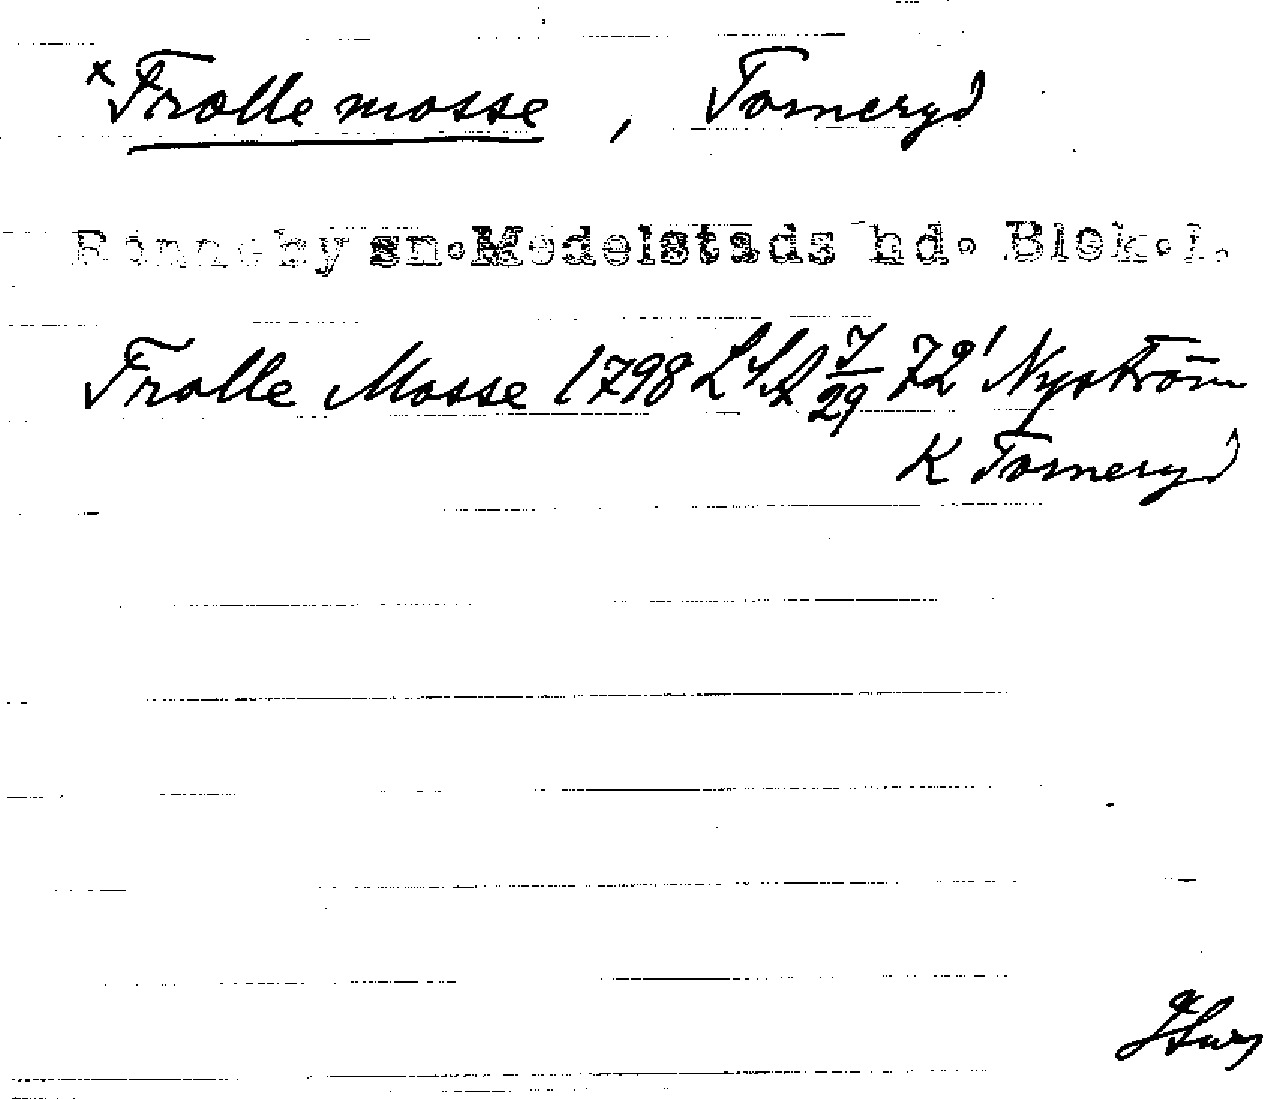 x Frolle mosse, Torneryd
Ronneby sn. Medelstads hd. Blek. l.
Frolle Mosse 1798 LSA 7/29 72' Nyström
K Torneryd